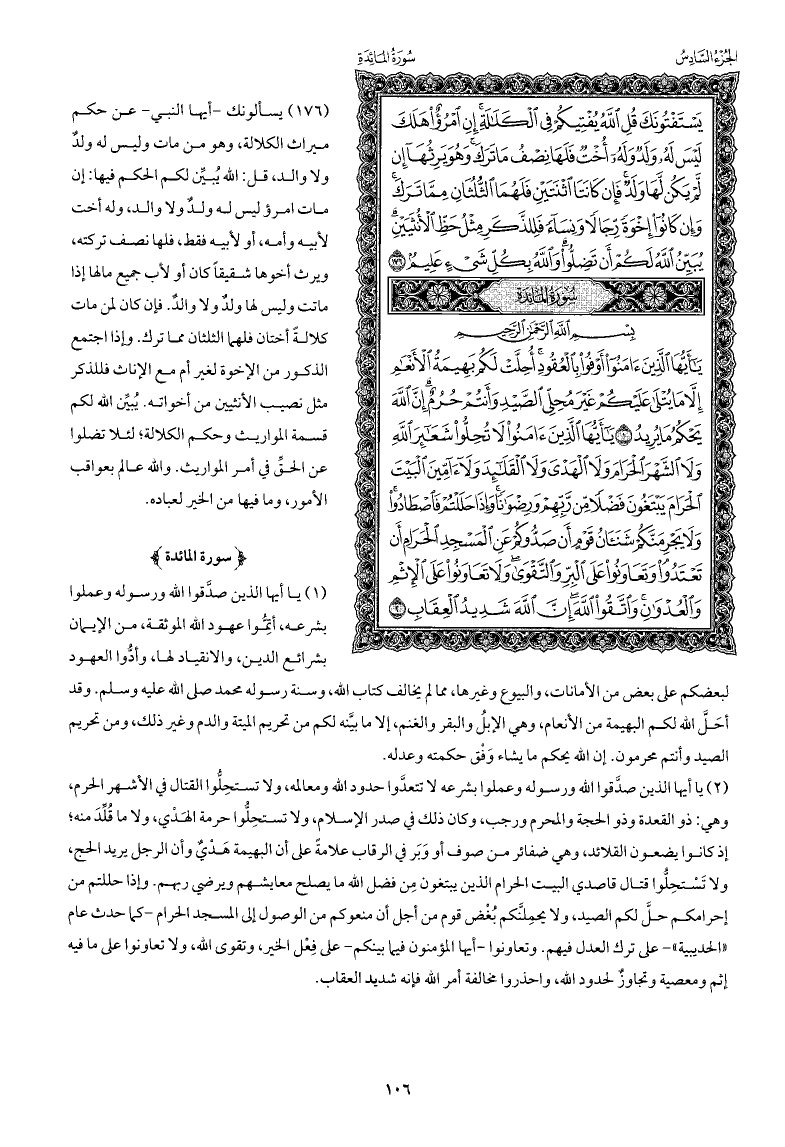 الجزء السادس
سورة المائدة
يَسْتَفْتُونَكَ قُلِ ٱللَّهُ يُفْتِيكُمْ فِي ٱلْكَلَٰلَةِۚ إِنِ ٱمْرُؤٌا۟ هَلَكَ
لَيْسَ لَهُۥ وَلَدٌ وَلَهُۥٓ أُخْتٌ فَلَهَا نِصْفُ مَا تَرَكَۚ وَهُوَ يَرِثُهَآ إِن
لَّمْ يَكُن لَّهَا وَلَدٌۚ فَإِن كَانَتَا ٱثْنَتَيْنِ فَلَهُمَا ٱلثُّلُثَانِ مِمَّا تَرَكَۚ
وَإِن كَانُوٓا۟ إِخْوَةً رِّجَالًا وَنِسَآءً فَلِلذَّكَرِ مِثْلُ حَظِّ ٱلْأُنثَيَيْنِۗ
يُبَيِّنُ ٱللَّهُ لَكُمْ أَن تَضِلُّوا۟ۗ وَٱللَّهُ بِكُلِّ شَيْءٍ عَلِيمٌۢ ١٧٦
سُورَةُ المَائِدَةِ
بِسْمِ ٱللَّهِ ٱلرَّحْمَٰنِ ٱلرَّحِيمِ
يَٰٓأَيُّهَا ٱلَّذِينَ ءَامَنُوٓا۟ أَوْفُوا۟ بِٱلْعُقُودِۚ أُحِلَّتْ لَكُم بَهِيمَةُ ٱلْأَنْعَٰمِ
إِلَّا مَا يُتْلَىٰ عَلَيْكُمْ غَيْرَ مُحِلِّي ٱلصَّيْدِ وَأَنتُمْ حُرُمٌۗ إِنَّ ٱللَّهَ
يَحْكُمُ مَا يُرِيدُ ١ يَٰٓأَيُّهَا ٱلَّذِينَ ءَامَنُوا۟ لَا تُحِلُّوا۟ شَعَٰٓئِرَ ٱللَّهِ
وَلَا ٱلشَّهْرَ ٱلْحَرَامَ وَلَا ٱلْهَدْيَ وَلَا ٱلْقَلَٰٓئِدَ وَلَآ ءَآمِّينَ ٱلْبَيْتَ
ٱلْحَرَامَ يَبْتَغُونَ فَضْلًا مِّن رَّبِّهِمْ وَرِضْوَٰنًاۚ وَإِذَا حَلَلْتُمْ فَٱصْطَادُوا۟ۚ
وَلَا يَجْرِمَنَّكُمْ شَنَـَٔانُ قَوْمٍ أَن صَدُّوكُمْ عَنِ ٱلْمَسْجِدِ ٱلْحَرَامِ أَن
تَعْتَدُوا۟ۘ وَتَعَاوَنُوا۟ عَلَى ٱلْبِرِّ وَٱلتَّقْوَىٰۖ وَلَا تَعَاوَنُوا۟ عَلَى ٱلْإِثْمِ
وَٱلْعُدْوَٰنِۚ وَٱتَّقُوا۟ ٱللَّهَۖ إِنَّ ٱللَّهَ شَدِيدُ ٱلْعِقَابِ ٢
(١٧٦) يسألونك -أيها النبي- عن حكم
ميراث الكلالة، وهو من مات وليس له ولدٌ
ولا والد، قل: الله يُبيِّن لكم الحكم فيها: إن
مات امرؤ ليس له ولدٌ ولا والد، وله أخت
لأبيه وأمه، أو لأبيه فقط، فلها نصف تركته،
ويرث أخوها شقيقاً كان أو لأب جميع مالها إذا
ماتت وليس لها ولدٌ ولا والدٌ. فإن كان لمن مات
كلالةً أختان فلهما الثلثان مما ترك. وإذا اجتمع
الذكور من الإخوة لغير أم مع الإناث فللذكر
مثل نصيب الأنثيين من أخواته. يُبيِّن الله لكم
قسمة المواريث وحكم الكلالة؛ لئلا تضلوا
عن الحقِّ في أمر المواريث. والله عالم بعواقب
الأمور، وما فيها من الخير لعباده.
﴿سورة المائدة﴾
(١) يا أيها الذين صدَّقوا الله ورسوله وعملوا
بشرعه، أتِمُّوا عهود الله الموثقة، من الإيمان
بشرائع الدين، والانقياد لها، وأدُّوا العهود
لبعضكم على بعض من الأمانات، والبيوع وغيرها، مما لم يخالف كتاب الله، وسنة رسوله محمد صلى الله عليه وسلم. وقد
أحَلَّ الله لكم البهيمة من الأنعام، وهي الإبلُ والبقر والغنم، إلا ما بيَّنه لكم من تحريم الميتة والدم وغير ذلك، ومن تحريم
الصيد وأنتم محرمون. إن الله يحكم ما يشاء وَفْق حكمته وعدله.
(٢) يا أيها الذين صدَّقوا الله ورسوله وعملوا بشرعه لا تتعدَّوا حدود الله ومعالمه، ولا تستحِلُّوا القتال في الأشهر الحرم،
وهي: ذو القعدة وذو الحجة والمحرم ورجب، وكان ذلك في صدر الإسلام، ولا تستحِلُّوا حرمة الهَدْي، ولا ما قُلِّدَ منه؛
إذ كانوا يضعون القلائد، وهي ضفائر من صوف أو وَبَر في الرقاب علامةً على أن البهيمة هَدْيٌ وأن الرجل يريد الحج،
ولا تَسْتحِلُّوا قتال قاصدي البيت الحرام الذين يبتغون مِن فضل الله ما يصلح معايشهم ويرضي ربهم. وإذا حللتم من
إحرامكم حلَّ لكم الصيد، ولا يحمِلنَّكم بُغْض قوم من أجل أن منعوكم من الوصول إلى المسجد الحرام -كما حدث عام
«الحديبية»- على ترك العدل فيهم. وتعاونوا -أيها المؤمنون فيما بينكم- على فِعْل الخير، وتقوى الله، ولا تعاونوا على ما فيه
إثم ومعصية وتجاوزٌ لحدود الله، واحذروا مخالفة أمر الله فإنه شديد العقاب.
١٠٦